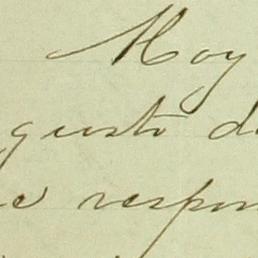 Hoy
gusto d
e respon